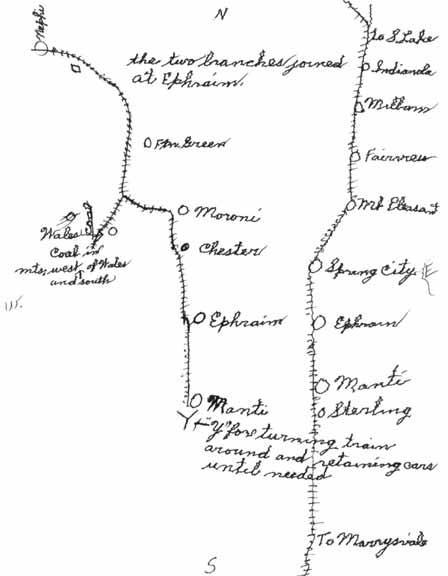 N
Nephi
to S Lake
the two branches joined
at Ephraim.
Indianola
Milburn
Ftn Green
Fairview
Mt Pleasant
Moroni
Wales
Chester
Coal in
mts, west of Wales
and south
Spring City
Ephraim
Ephraim
Manti
Manti
Sterling
"Y" for turning train
around and retaining cars
until needed
To Marysvale
S